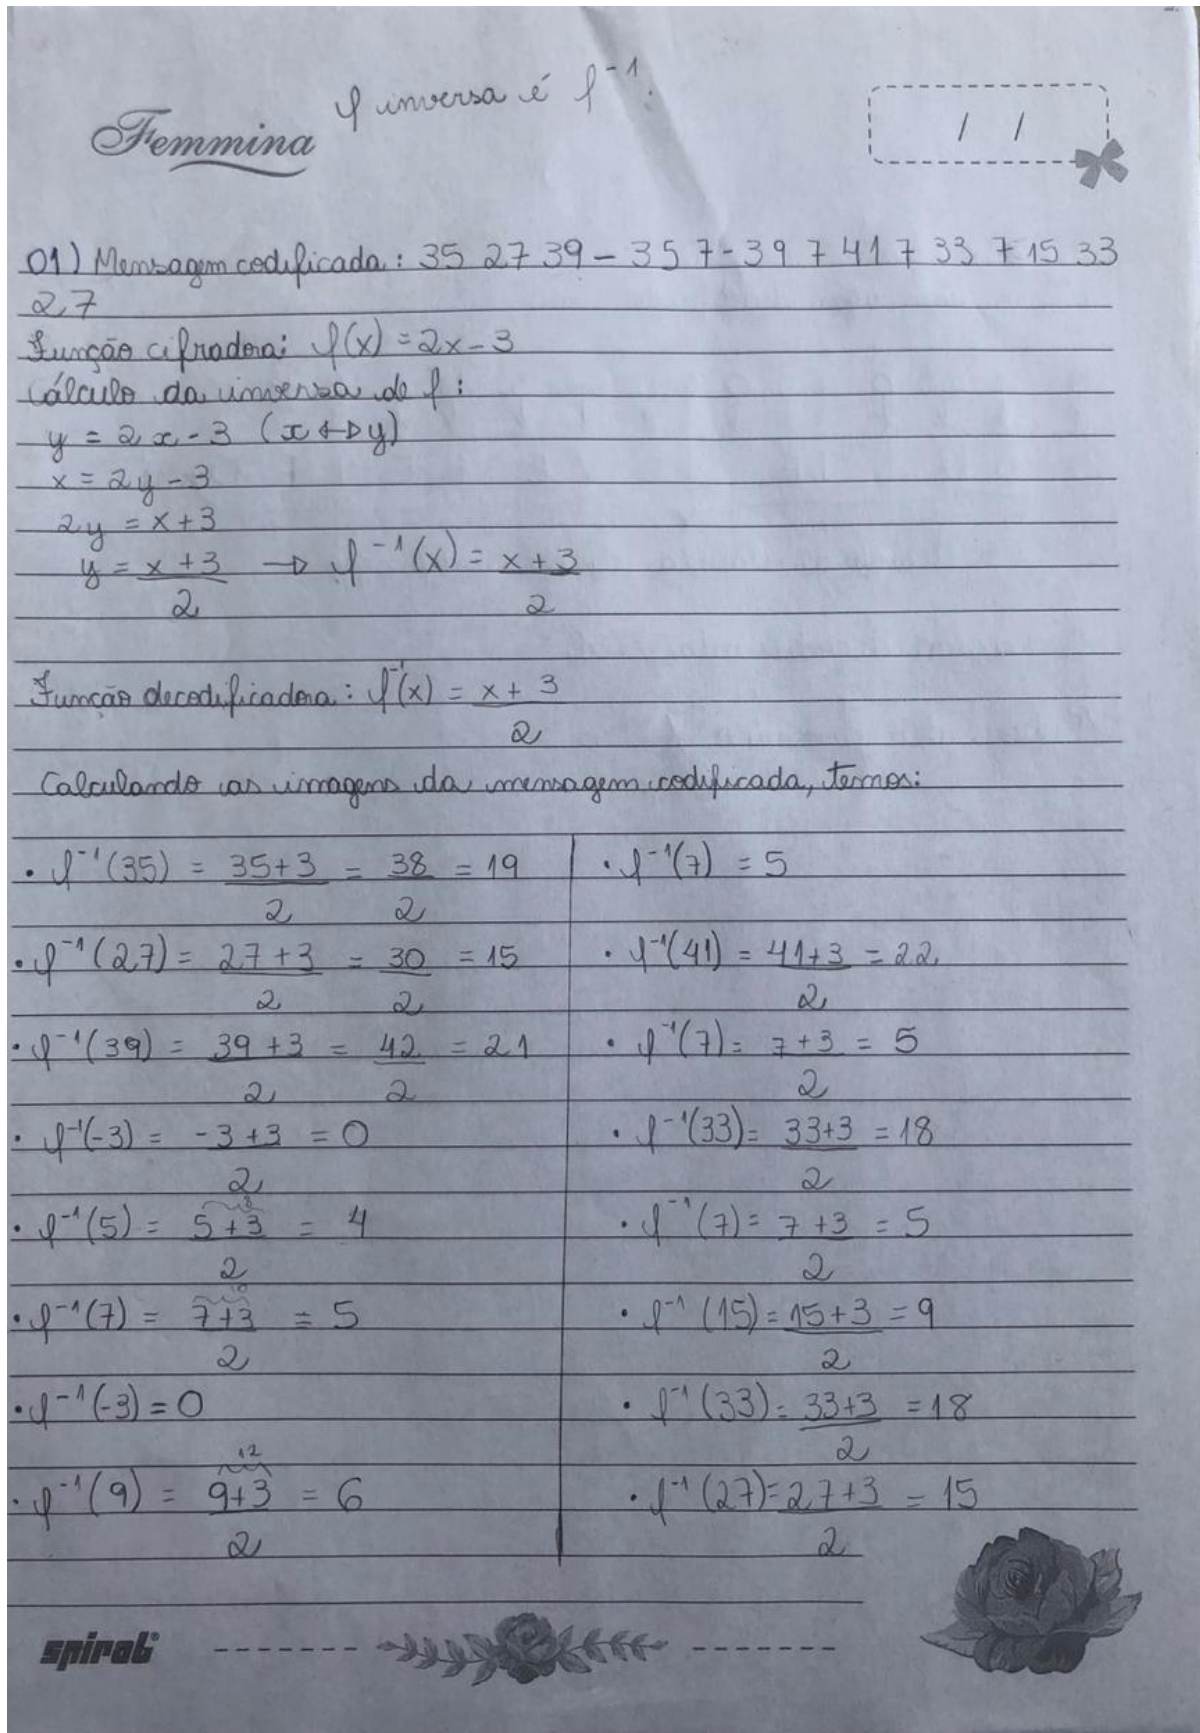 f inversa é f⁻¹.
Femmina
/ /
01) Mensagem codificada: 35 27 39 - 3 5 7 - 3 9 7 41 7 33 7 15 33
27
Função cifradora: f(x) = 2x - 3
Cálculo da inversa de f:
y = 2x - 3 (x ↔ y)
x = 2y - 3
2y = x + 3
y = x + 3 / 2 → f⁻¹(x) = x + 3 / 2
Função decodificadora: f⁻¹(x) = x + 3 / 2
Calculando as imagens da mensagem codificada, temos:
• f⁻¹(35) = 35+3 / 2 = 38 / 2 = 19
• f⁻¹(27) = 27+3 / 2 = 30 / 2 = 15
• f⁻¹(39) = 39+3 / 2 = 42 / 2 = 21
• f⁻¹(-3) = -3+3 / 2 = 0
• f⁻¹(5) = 5+3 / 2 = 4
8
• f⁻¹(7) = 7+3 / 2 = 5
10
• f⁻¹(-3) = 0
12
• f⁻¹(9) = 9+3 / 2 = 6
• f⁻¹(7) = 5
• f⁻¹(41) = 41+3 / 2 = 22
• f⁻¹(7) = 7+3 / 2 = 5
• f⁻¹(33) = 33+3 / 2 = 18
• f⁻¹(7) = 7+3 / 2 = 5
• f⁻¹(15) = 15+3 / 2 = 9
• f⁻¹(33) = 33+3 / 2 = 18
• f⁻¹(27) = 27+3 / 2 = 15
spiral®